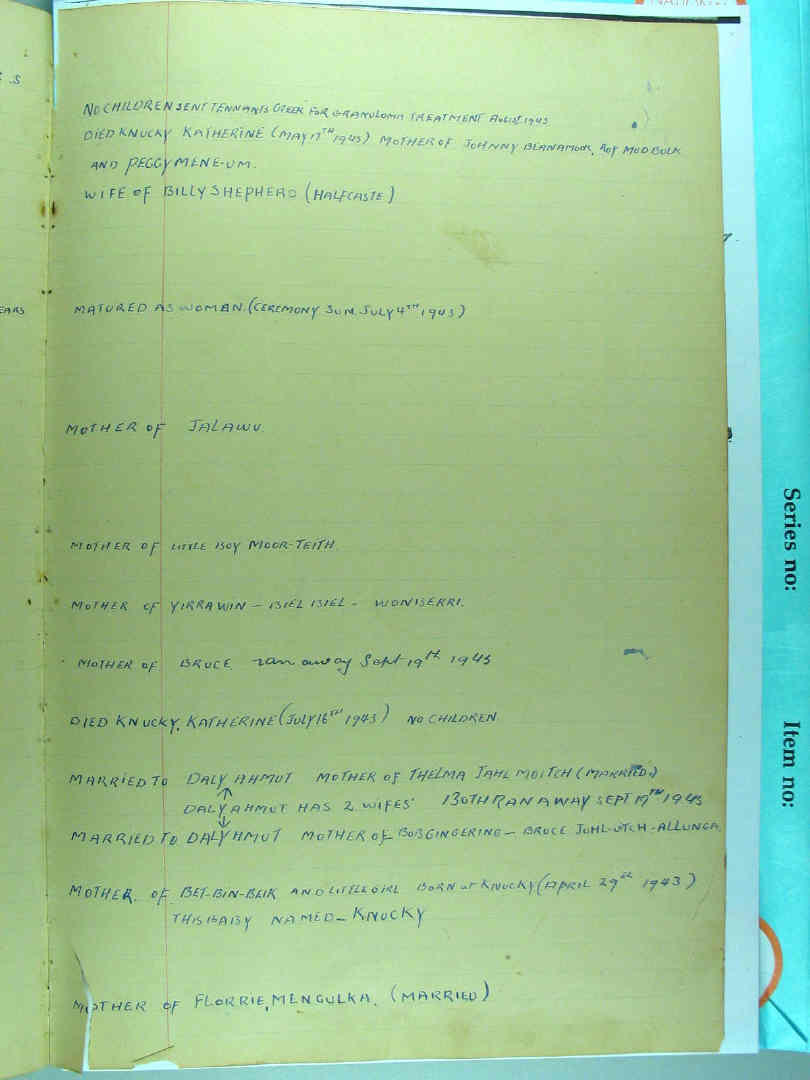 NO CHILDREN SENT TENNANTS CREEK FOR GRANULOMA TREATMENT AUGUST 1943
DIED KNUCKY KATHERINE (MAY 17TH 1943) MOTHER OF JOHNNY BLANAMOOK, ROY MUDBULK
AND PEGGY MENE-UM.
WIFE OF BILLY SHEPHERD (HALFCASTE)
MATURED AS WOMAN. (CEREMONY SUN. JULY 4TH 1943)
MOTHER OF JALAWU.
MOTHER OF LITTLE BOY MOOR-TEITH.
MOTHER OF YIRRAWIN – BIEL BIEL – WONBERRI.
MOTHER OF BRUCE. ran away Sept 19th 1943
DIED KNUCKY, KATHERINE (JULY 16TH 1943) NO CHILDREN
MARRIED TO DALY AHMUT MOTHER OF THELMA JAHLMOITCH (MARRIED)
DALYAHMUT HAS 2 WIFES BOTH RAN AWAY SEPT 19TH 1943
MARRIED TO DALYHMUT MOTHER OF BOB GINGERING – BRUCE JUHL-UTCH-ALLUNGA.
MOTHER OF BET-BIN-BEIK AND LITTLE GIRL BORN at KNUCKY (APRIL 29th 1943)
THIS BABY NAMED – KNUCKY
MOTHER OF FLORRIE, MENGULKA. (MARRIED)
EARS
Series no:
Item no: